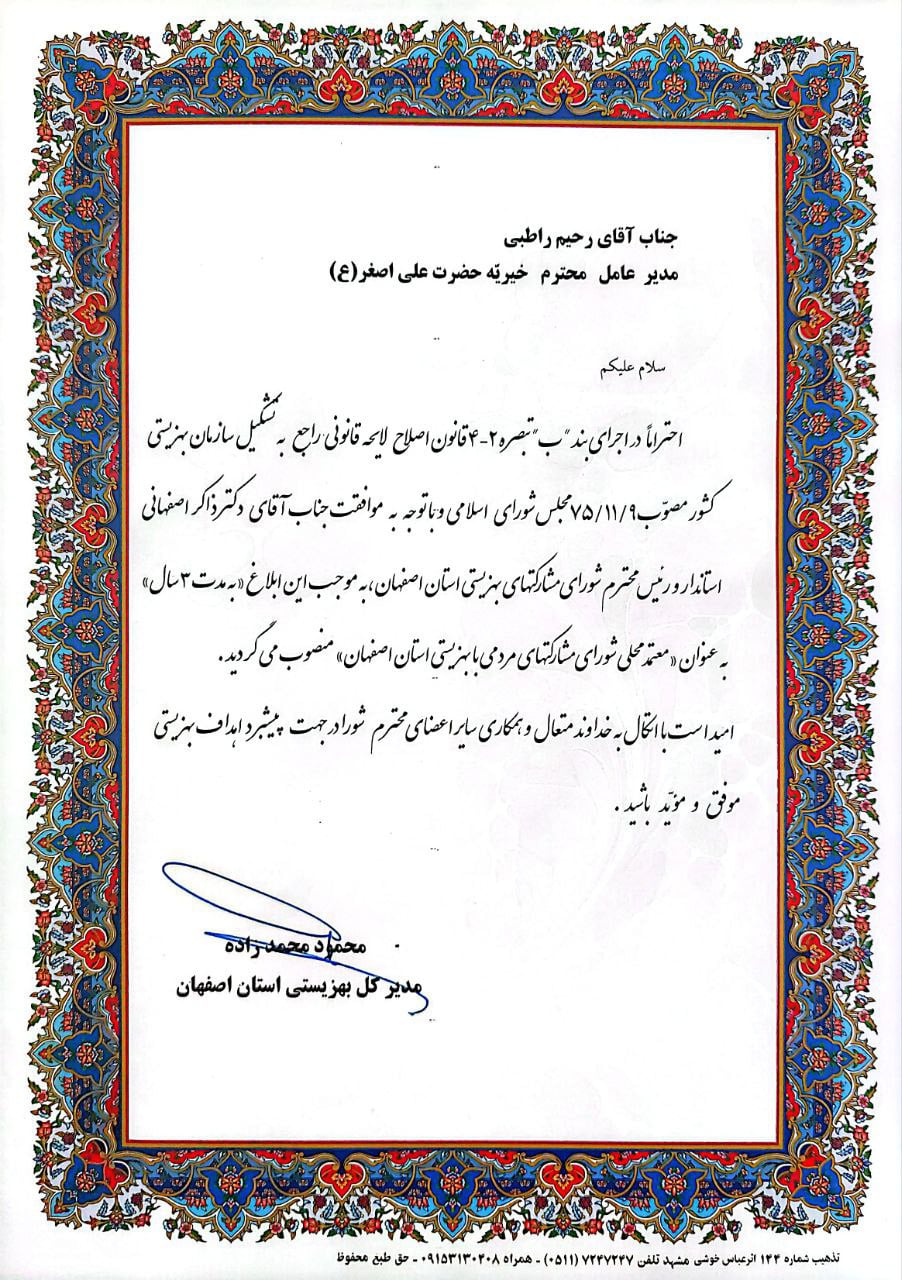 جناب آقای رحیم راطبی
مدیر عامل محترم خیریّه حضرت علی اصغر(ع)
سلام علیکم
احتراماً در اجرای بند "ب" تبصره ۲-۴ قانون اصلاح لایحه قانونی راجع به تشکیل سازمان بهزیستی
کشور مصوّب ۷۵/۱۱/۹ مجلس شورای اسلامی و با توجه به موافقت جناب آقای دکتر ذاکر اصفهانی
استاندار و رئیس محترم شورای مشارکتهای بهزیستی استان اصفهان، به موجب این ابلاغ «به مدت ۳ سال»
به عنوان «معتمد محلی شورای مشارکتهای مردمی با بهزیستی استان اصفهان» منصوب می گردید.
امید است با اتکال به خداوند متعال و همکاری سایر اعضای محترم شورا در جهت پیشبرد اهداف بهزیستی
موفق و مؤیّد باشید.
محمود محمد زاده
مدیر کل بهزیستی استان اصفهان
تذهیب شماره ۱۴۴ اثرعباس خوشی مشهد تلفن ۷۲۴۷۲۴۷ (۰۵۱۱) - همراه ۰۹۱۵۳۱۳۰۴۰۸ - حق طبع محفوظ